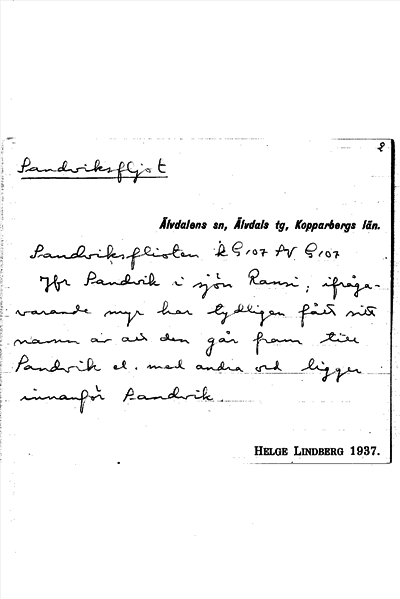 2
Sandviksfljot
Älvdalens sn, Älvdals tg, Kopparbergs län.
Sandviksflioten k G107 AV G107
Jfr Sandvik i sjön Ransi; ifråga-
varande myr har tydligen fått sitt
namn av att den går fram till
Sandvik el. med andra ord ligger
innanför Sandvik.
HELGE LINDBERG 1937.